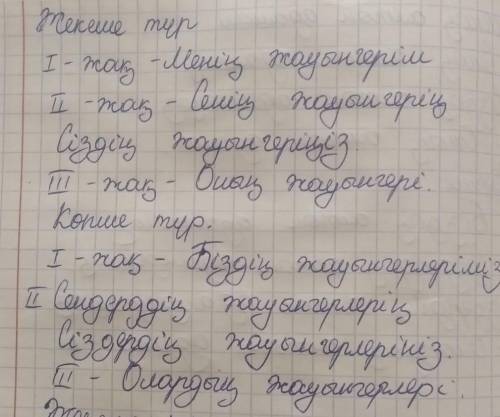 Жекеше түр
I - жақ - Менің жауынгерім
II - жақ - Сенің жауынгерің
Сіздің жауынгеріңіз.
III - жақ - Оның жауынгері.
Көпше түр.
I - жақ - Біздің жауынгерлеріміз
II Сендерддің жауынгерлерің
Сіздердің жауынгерлеріңіз.
III - Олардың жауынгерлері.